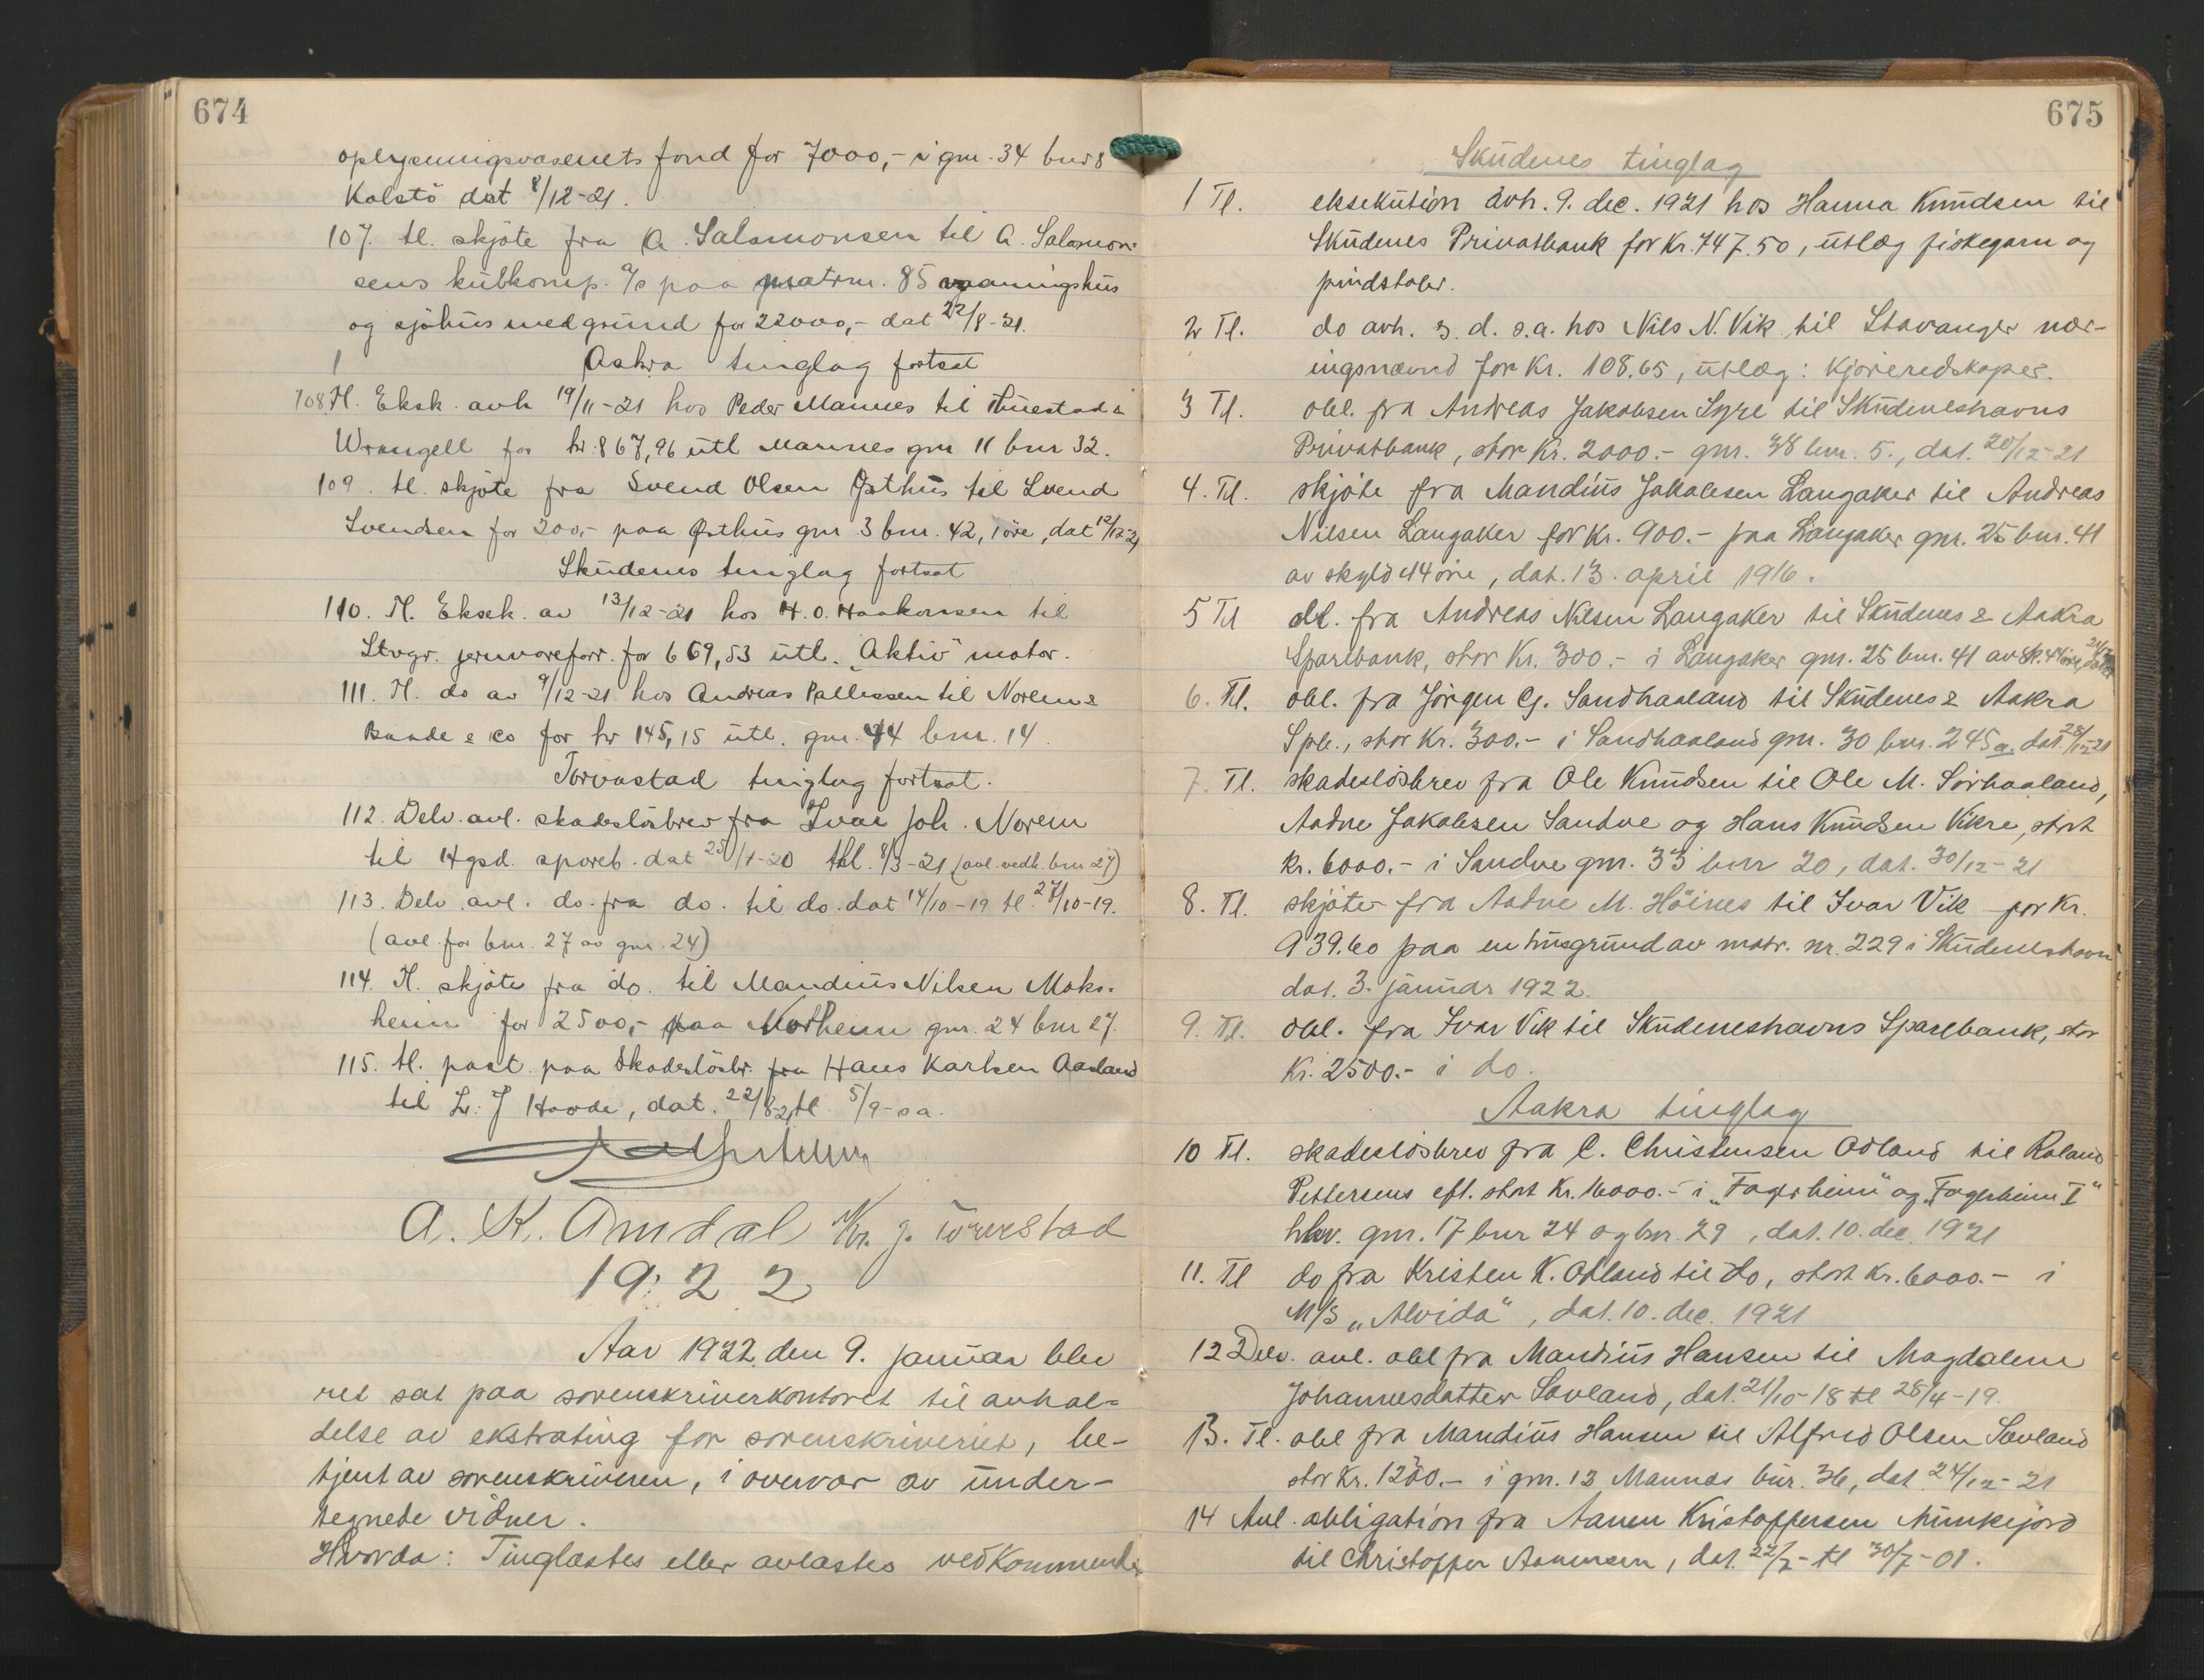 674
oplysningsvæsenets fond for 7000,- i gnr. 34 bnr 8
Kolstö dat 8/12-21.
107. tl. skjöte fra A. Salamonsen til A. Salamon-
sens kulkomp. A/S paa matrnr. 85 vaaningshus
og sjöhus med grund for 22000,- dat 22/8-21.
Aakra tinglag fortsat
108. Tl. Eksk. avh 19/11-21 hos Peder Mannes til Thuestad &
Wrangell for kr. 867,96 utl Mannes gnr 11 bnr 32.
109. tl. skjöte fra Svend Olsen Østhus til Svend
Svendsen for 200,- paa Østhus gnr 3 bnr. 42, 1 öre, dat 12/12-21
Skudenes tinglag fortsat
110. Tl. Eksek. av 13/12-21 hos H. O. Haakonsen til
Stvgr. jernvareforr. for 669,53 utl. „Aktiv" motor.
111. Tl. do av 9/12-21 hos Andreas Pallessen til Norem &
Baade & Co for kr 145,15 utl. gnr. 44 bnr. 14.
Torvastad tinglag fortsat.
112. Delv. avl. skadeslösbrev fra Ivar Joh. Norem
til Hgsd. spareb. dat 25/1-20 tbl. 8/3-21 (avl. vedk. bnr 27)
113. Delv. avl. do. fra do. til do. dat 14/10-19 tl. 27/10-19.
(avl. for bnr. 27 av gnr. 24)
114. Tl. skjöte fra do. til Mandius Nilsen Moks-
heim for 2500,- paa Norheim gnr. 24 bnr 27.
115. tl. paat. paa Skadeslösbr. fra Hans Karlsen Aasland
til L. J Haarde, dat. 22/8-21 tl. 5/9-s a.
A. K. Amdal Kr. J. Törrestad
1922
Aar 1922 den 9. januar blev
ret sat paa sorenskriverkontoret til avhol-
delse av ekstrating for sorenskriveriet, be-
tjent av sorenskriveren, i overvær av under-
tegnede vidner.
Hvorda: Tinglæstes eller avlæstes vedkommende
675
Skudenes tinglag
1 Tl. eksekution avh. 9. dec. 1921 hos Hanna Knudsen til
Skudenes Privatbank for Kr. 747.50, utlæg fiskegarn og
pindstoler.
2 Tl. do avh. s. d. s.a. hos Nils N. Vik til Stavanger nær-
ingsnævnd for Kr. 108.65, utlæg: Kjöreredskaper.
3 Tl. obl. fra Andreas Jakobsen Syre til Skudeneshavns
Privatbank, stor Kr. 2000.- gnr. 38 bnr. 5., dat. 20/12-21
4. Tl. skjöte fra Mandius Jakobsen Langaker til Andreas
Nilsen Langaker for Kr. 900.- paa Langaker gnr. 25 bnr. 41
av skyld 44 öre, dat. 13. april 1916.
5 Tl obl. fra Andreas Nilsen Langaker til Skudenes & Aakra
Sparebank, stor Kr. 300.- i Langaker gnr. 25 bnr. 41 av sk. 44 öre,
6. Tl. obl. fra Jörgen Cj. Sandhaaland til Skudenes & Aakra
Spb., stor Kr. 300.- i Sandhaaland gnr. 30 bnr. 245a. dat. 28/12-21
7. Tl. skadeslösbrev fra Ole Knudsen til Ole M. Sörhaaland,
Aadne Jakobsen Sandve og Hans Knudsen Vikre, stort
Kr. 6000.- i Sandve gnr. 33 bnr 20, dat. 30/12-21
8. Tl. skjöte fra Aadne M. Höines til Ivar Vik for Kr.
939.60 paa en husgrund av matr. nr. 229 i Skudeneshavn
dat. 3. januar 1922.
9. Tl. obl. fra Ivar Vik til Skudeneshavns Sparebank, stor
Kr. 2500.- i do.
Aakra tinglag
10 Tl. skadeslösbrev fra C. Christensen Odland til Roland
Pettersens eft. stort Kr. 16000.- i „Fagerheim" og „Fagerheim I"
hhv. gnr. 17 bnr 24 og bnr. 29, dat. 10. dec. 1921
11. Tl do fra Kristen K. Odland til do, stort Kr. 6000.- i
M/S „Alvida", dat. 10. dec. 1921
12 Delv. avl. obl fra Mandius Hansen til Magdalene
Johannesdatter Sævland, dat. 21/10-18 tl 28/4-19.
13. Tl. obl fra Mandius Hansen til Alfred Olsen Sævland
stor Kr. 1200.- i gnr. 13 Mannes bnr. 36, dat. 24/12-21
14 Avl. obligation fra Aanen Kristoffersen Munkejord
til Christoffer Aanensen, dat. 22/7- tl 30/7-01.